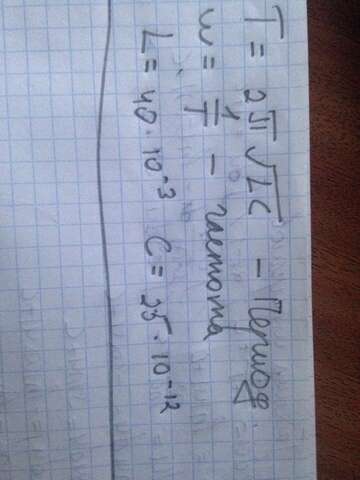 T = 2π√LC - Период
w = 1/T - частота
L = 40 · 10⁻³ C = 25 · 10⁻¹²